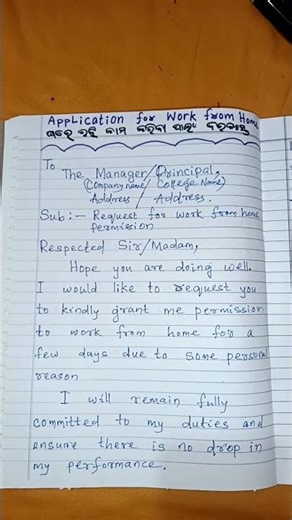 Application for Work from Home
ଘରେ ରହି କାମ କରିବା ପାଇଁ ଦରଖାସ୍ତ
To
The Manager/Principal,
(Company name/ College Name)
Address / Address.
Sub:- Request for work from home
permission
Respected Sir/Madam,
Hope you are doing well.
I would like to request you
to kindly grant me permission
to work from home for a
few days due to some personal
reason
I will remain fully
committed to my duties and
ensure there is no drop in
my performance.